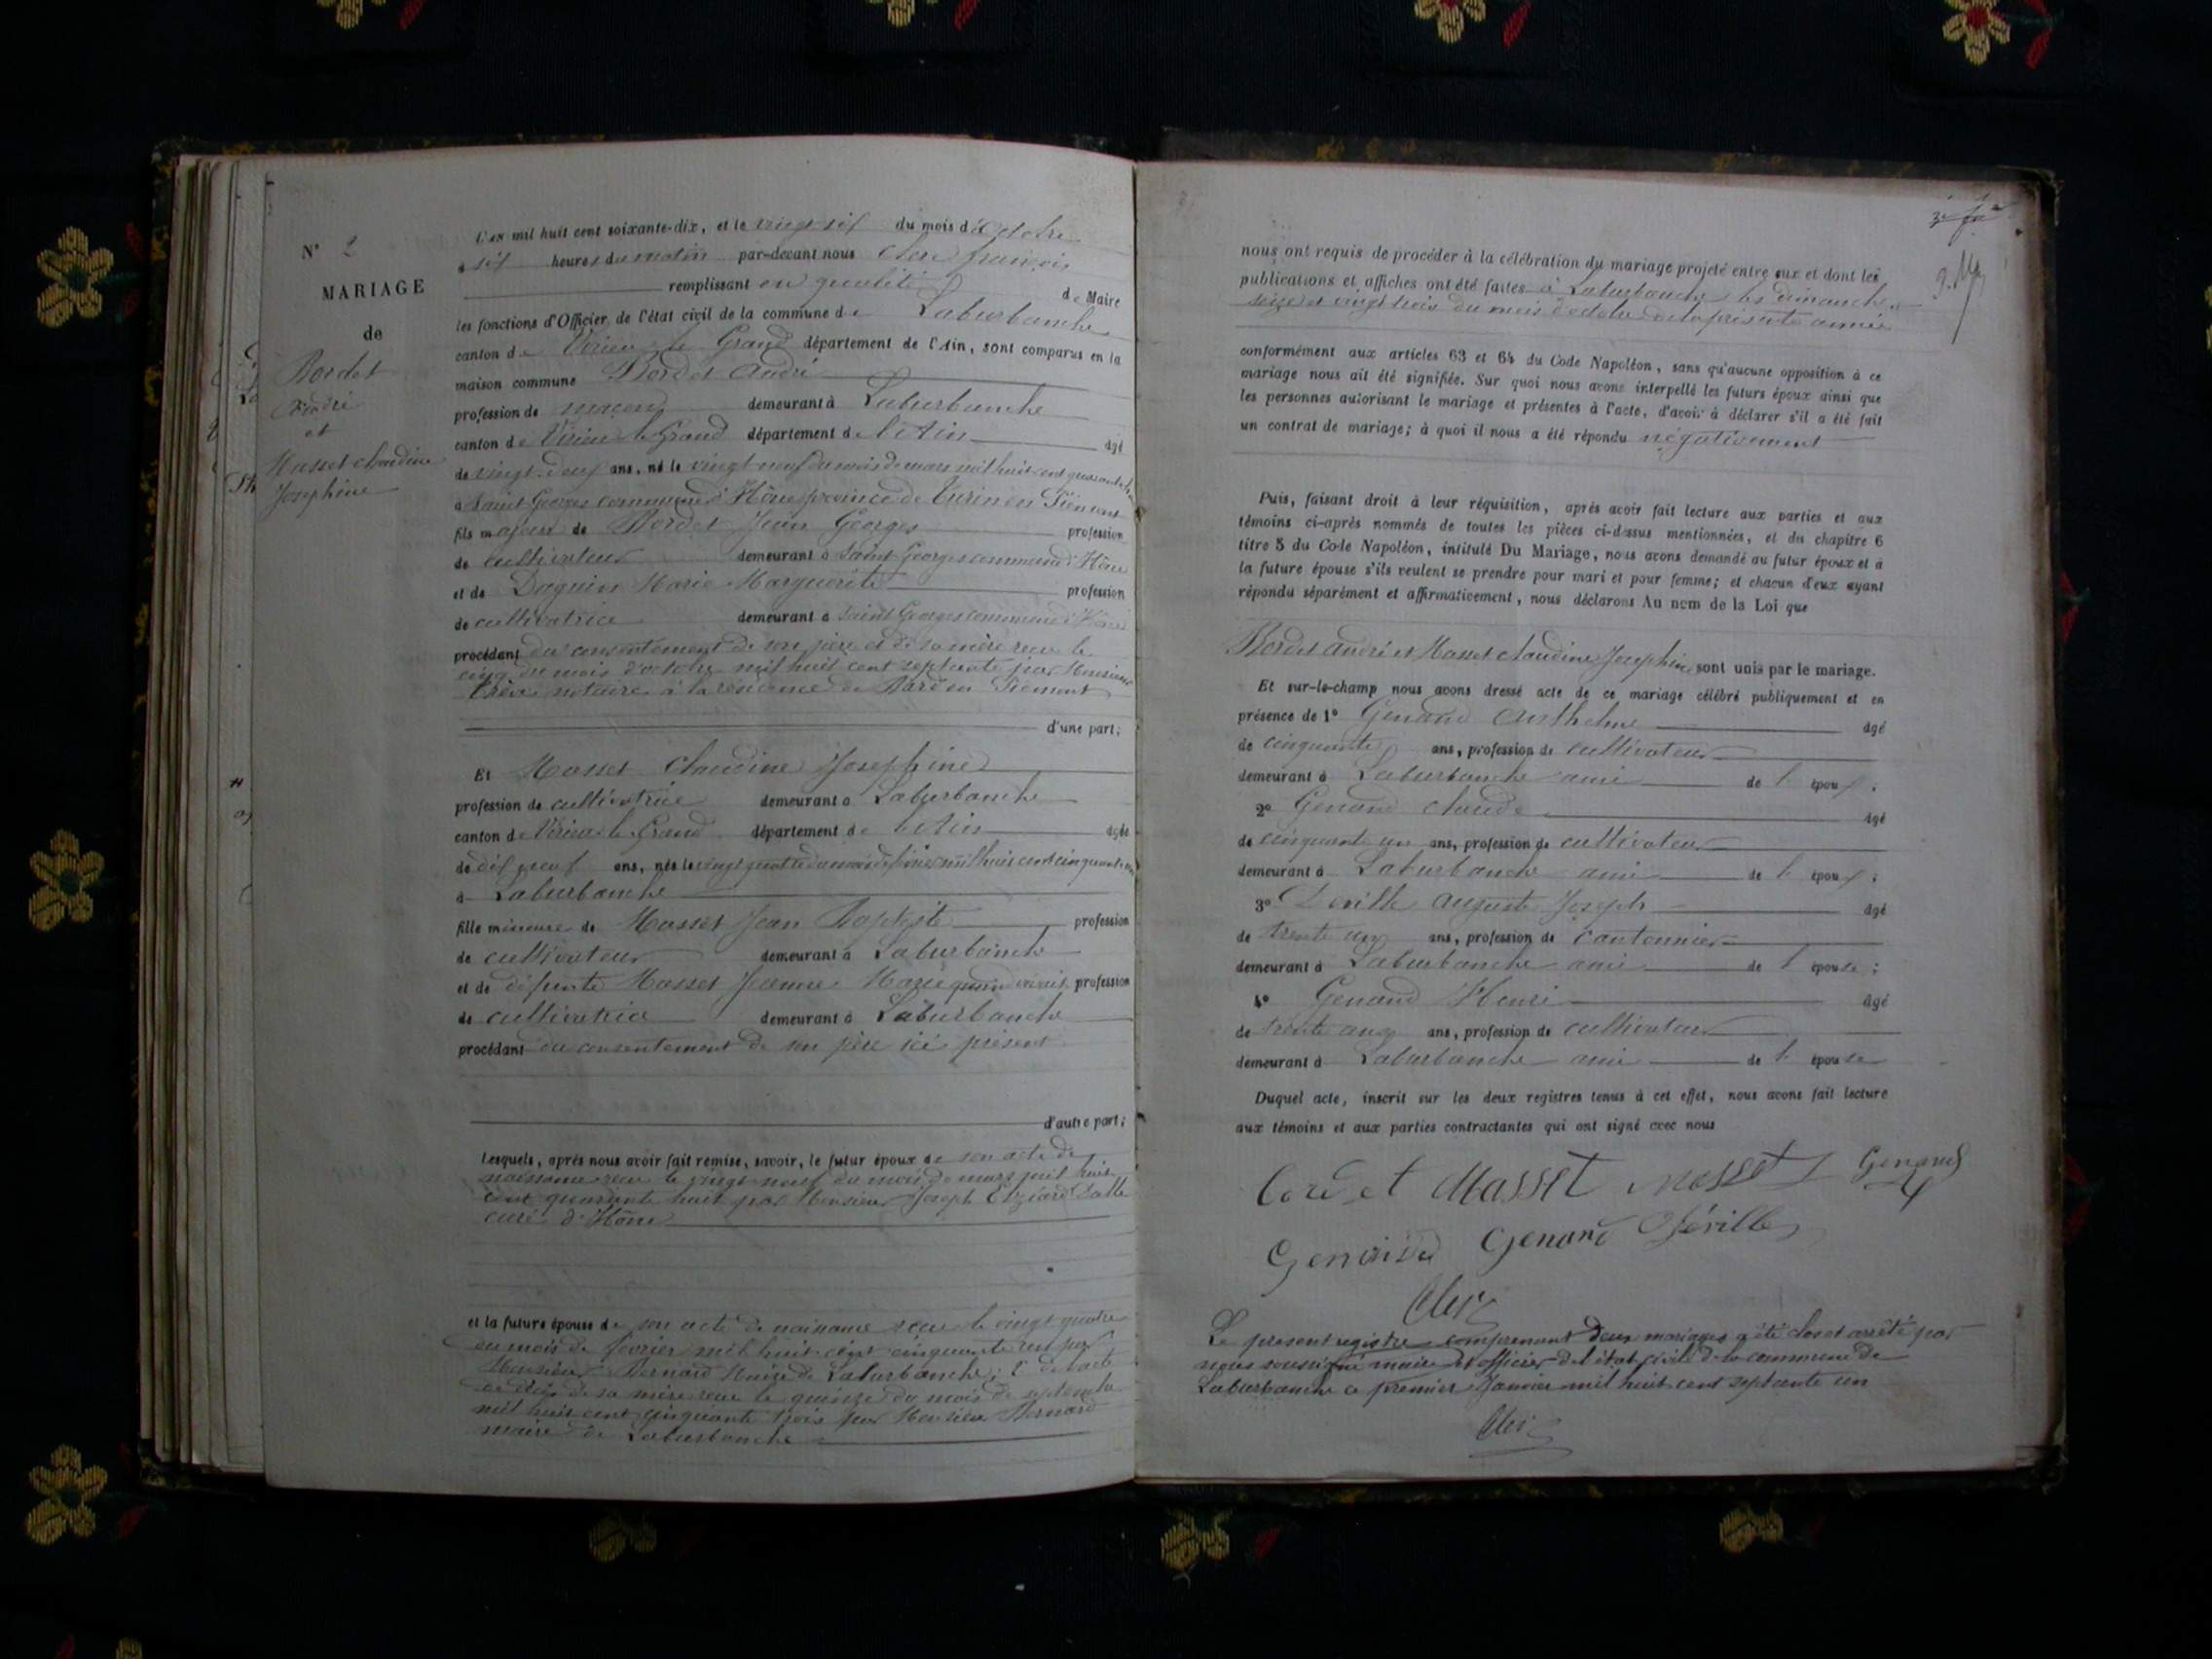 N° 2
MARIAGE
de
Bordet
André
et
Masset Claudine
Josephine
L'an mil huit cent soixante-dix, et le vingt six du mois d'Octobre
à six heures du matin par-devant nous Clerc françois
remplissant en qualité de Maire
les fonctions d'Officier de l'état civil de la commune de Laburbanche
canton de Virieu le Grand département de l'Ain, sont comparus en la
maison commune Bordet André
profession de maçon demeurant à Laburbanche
canton de Virieu le Grand département de l'Ain âgé
de vingt deux ans, né le vingt neuf du mois de mars mil huit cent quarante
à Saint Georges commune d'Hône province de Turin en Piemont
fils majeur de Bordet Jean Georges profession
de cultivateur demeurant à Saint Georges commune d'Hône
et de Daguin Marie Marguerite profession
de cultivatrice demeurant à Saint Georges commune d'Hône
procédant du consentement de son père et de sa mère reçu le
cinq du mois d'octobre mil huit cent septante par Monsieur
notaire à la résidence de Bard en Piemont
d'une part;
Et Masset Claudine Josephine
profession de cultivatrice demeurant à Laburbanche
canton de Virieu le Grand département de l'Ain âgée
de dix neuf ans, née le vingt quatre du mois de février mil huit cent cinquante un
à Laburbanche
fille mineure de Masset Jean Baptiste profession
de cultivateur demeurant à Laburbanche
et de défunte Masset Jeanne Marie quand vivait profession
de cultivatrice demeurant à Laburbanche
procédant du consentement de son père ici présent
d'autre part;
Lesquels, après nous avoir fait remise, savoir, le futur époux de son acte de
naissance reçu le vingt neuf du mois de mars mil huit
cent quarante huit par Monsieur Joseph
curé d'Hône
et la future épouse de son acte de naissance reçu le vingt quatre
du mois de février mil huit cent cinquante un par
Monsieur Bernard Maire de Laburbanche; 2° de l'acte
de décès de sa mère reçu le quinze du mois de septembre
mil huit cent cinquante trois par Monsieur Bernard
maire de Laburbanche
nous ont requis de procéder à la célébration du mariage projeté entre eux et dont les
publications et affiches ont été faites à Laburbanche les dimanches
seize et vingt trois du mois d'octobre de la présente année
conformément aux articles 63 et 64 du Code Napoléon, sans qu'aucune opposition à ce
mariage nous ait été signifiée. Sur quoi nous avons interpellé les futurs époux ainsi que
les personnes autorisant le mariage et présentes à l'acte, d'avoir à déclarer s'il a été fait
un contrat de mariage; à quoi il nous a été répondu négativement
Puis, faisant droit à leur réquisition, après avoir fait lecture aux parties et aux
témoins ci-après nommés de toutes les pièces ci-dessus mentionnées, et du chapitre 6
titre 5 du Code Napoléon, intitulé Du Mariage, nous avons demandé au futur époux et à
la future épouse s'ils veulent se prendre pour mari et pour femme; et chacun d'eux ayant
répondu séparément et affirmativement, nous déclarons Au nom de la Loi que
Bordet andré et Masset claudine Josephine sont unis par le mariage.
Et sur-le-champ nous avons dressé acte de ce mariage célébré publiquement et en
présence de 1° Genand Anthelme âgé
de cinquante ans, profession de cultivateur
demeurant à Laburbanche ami de l'époux;
2° Genand claude âgé
de cinquante un ans, profession de cultivateur
demeurant à Laburbanche ami de l'époux;
3° Deville Auguste Joseph âgé
de trente un ans, profession de cantonnier
demeurant à Laburbanche ami de l'épouse;
4° Genand Henri âgé
de trente ans, profession de cultivateur
demeurant à Laburbanche ami de l'épouse
Duquel acte, inscrit sur les deux registres tenus à cet effet, nous avons fait lecture
aux témoins et aux parties contractantes qui ont signé avec nous
Masset Masset Genand
Genand Genand Déville
Clerc
Le présent registre comprenant deux mariages a été clos et arrêté par
nous soussigné maire et officier de l'état civil de la commune de
Laburbanche ce premier Janvier mil huit cent septante un
Clerc